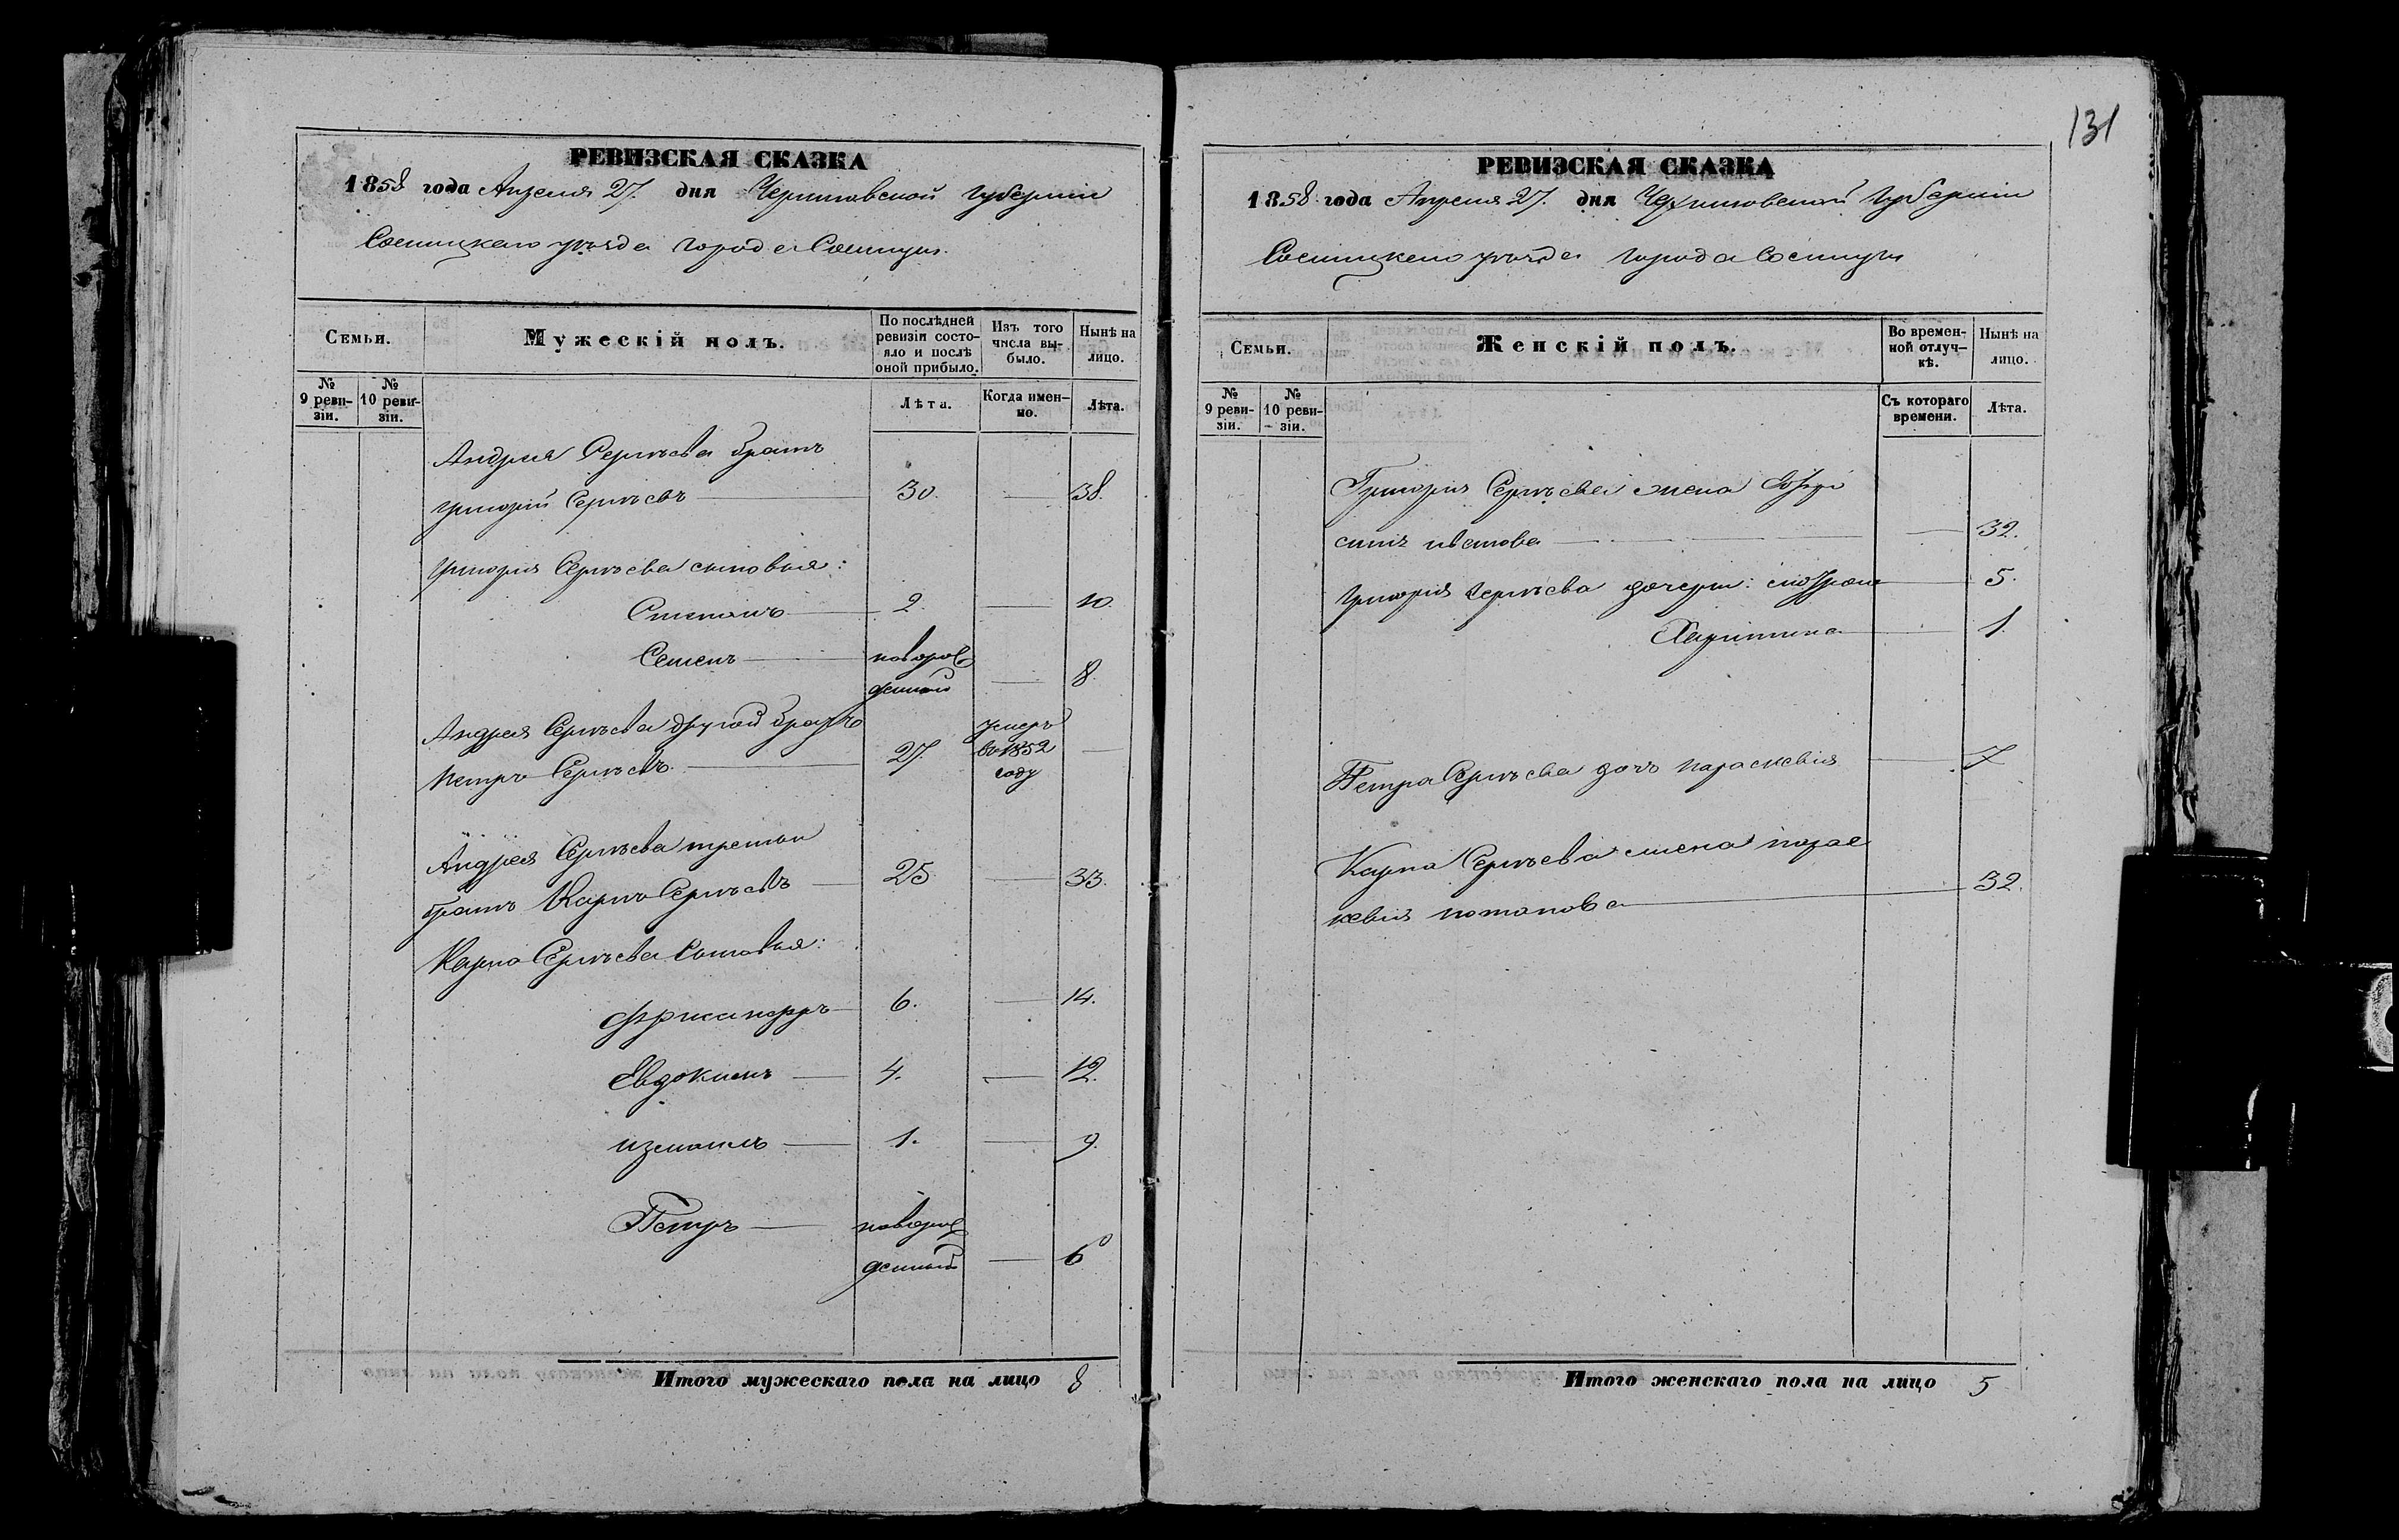 131
РЕВИЗСКАЯ СКАЗКА
1858 года Апреля 27. дня Черниговской Губерніи
Сосницкаго уѣзда города Сосницы.
Семьи.
Мужескій полъ.
По послѣдней ревизіи состояло и послѣ оной прибыло.
Изъ того числа выбыло.
Нынѣ на лицо.
№ 9 ревизіи.
№ 10 ревизіи.
Лѣта.
Когда именно.
Лѣта.
Андрея Сергѣева братъ
григорій Сергѣевъ 30. 38.
григорія Сергѣева сыновья:
Степанъ 2. 10.
Семенъ новорож
денный 8.
Андрея Сергѣева другой братъ
петръ Сергѣевъ. 27. умеръ
въ 1852
году
Андрея Сергѣева третьи
братъ Карпъ Сергѣевъ 25 33.
Карпа Сергѣева сыновья:
6. 14.
Евдокимъ 4. 12.
измаилъ 1. 9.
Петръ новорож
денный 6
Итого мужескаго пола на лицо 8
РЕВИЗСКАЯ СКАЗКА
1858 года Апреля 27. дня Черниговской Губерніи
Сосницкаго уѣзда города Сосницы
Семьи.
Женскій полъ.
Во временной отлучкѣ.
Нынѣ на лицо.
№ 9 ревизіи.
№ 10 ревизіи.
Съ котораго времени.
Лѣта.
Григорія Сергѣева жена
иванова 32.
григорія Сергѣева дочери: 5.
Харитина 1.
Петра Сергѣева дочь параскевія 7
Карпа Сергѣева жена парас
кевія потапова 32.
Итого женскаго пола на лицо 5